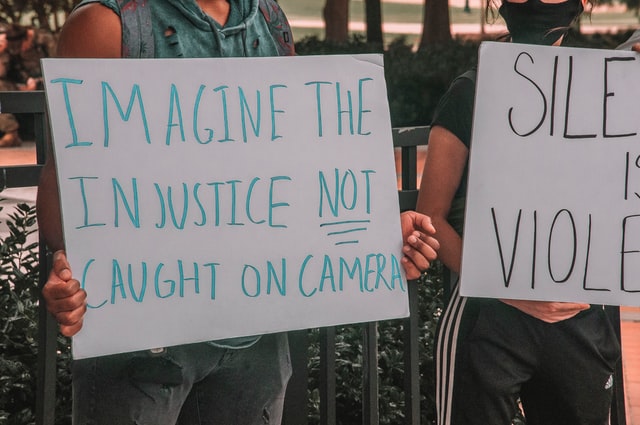 IMAGINE THE
INJUSTICE NOT
CAUGHT ON CAMERA
SILE
IS
VIOLE
adidas